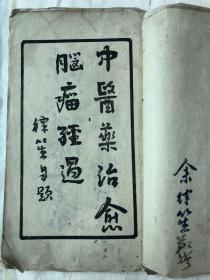 中醫藥治愈
腦瘤經過
律笙自题
余律笙